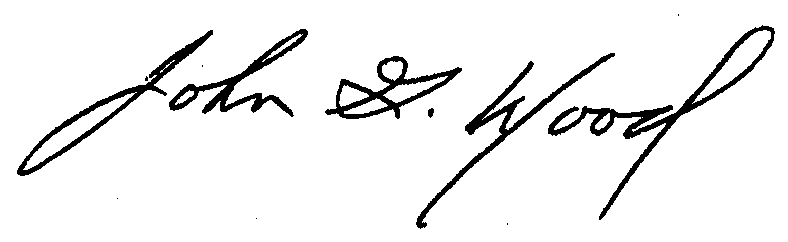 John G. Wood